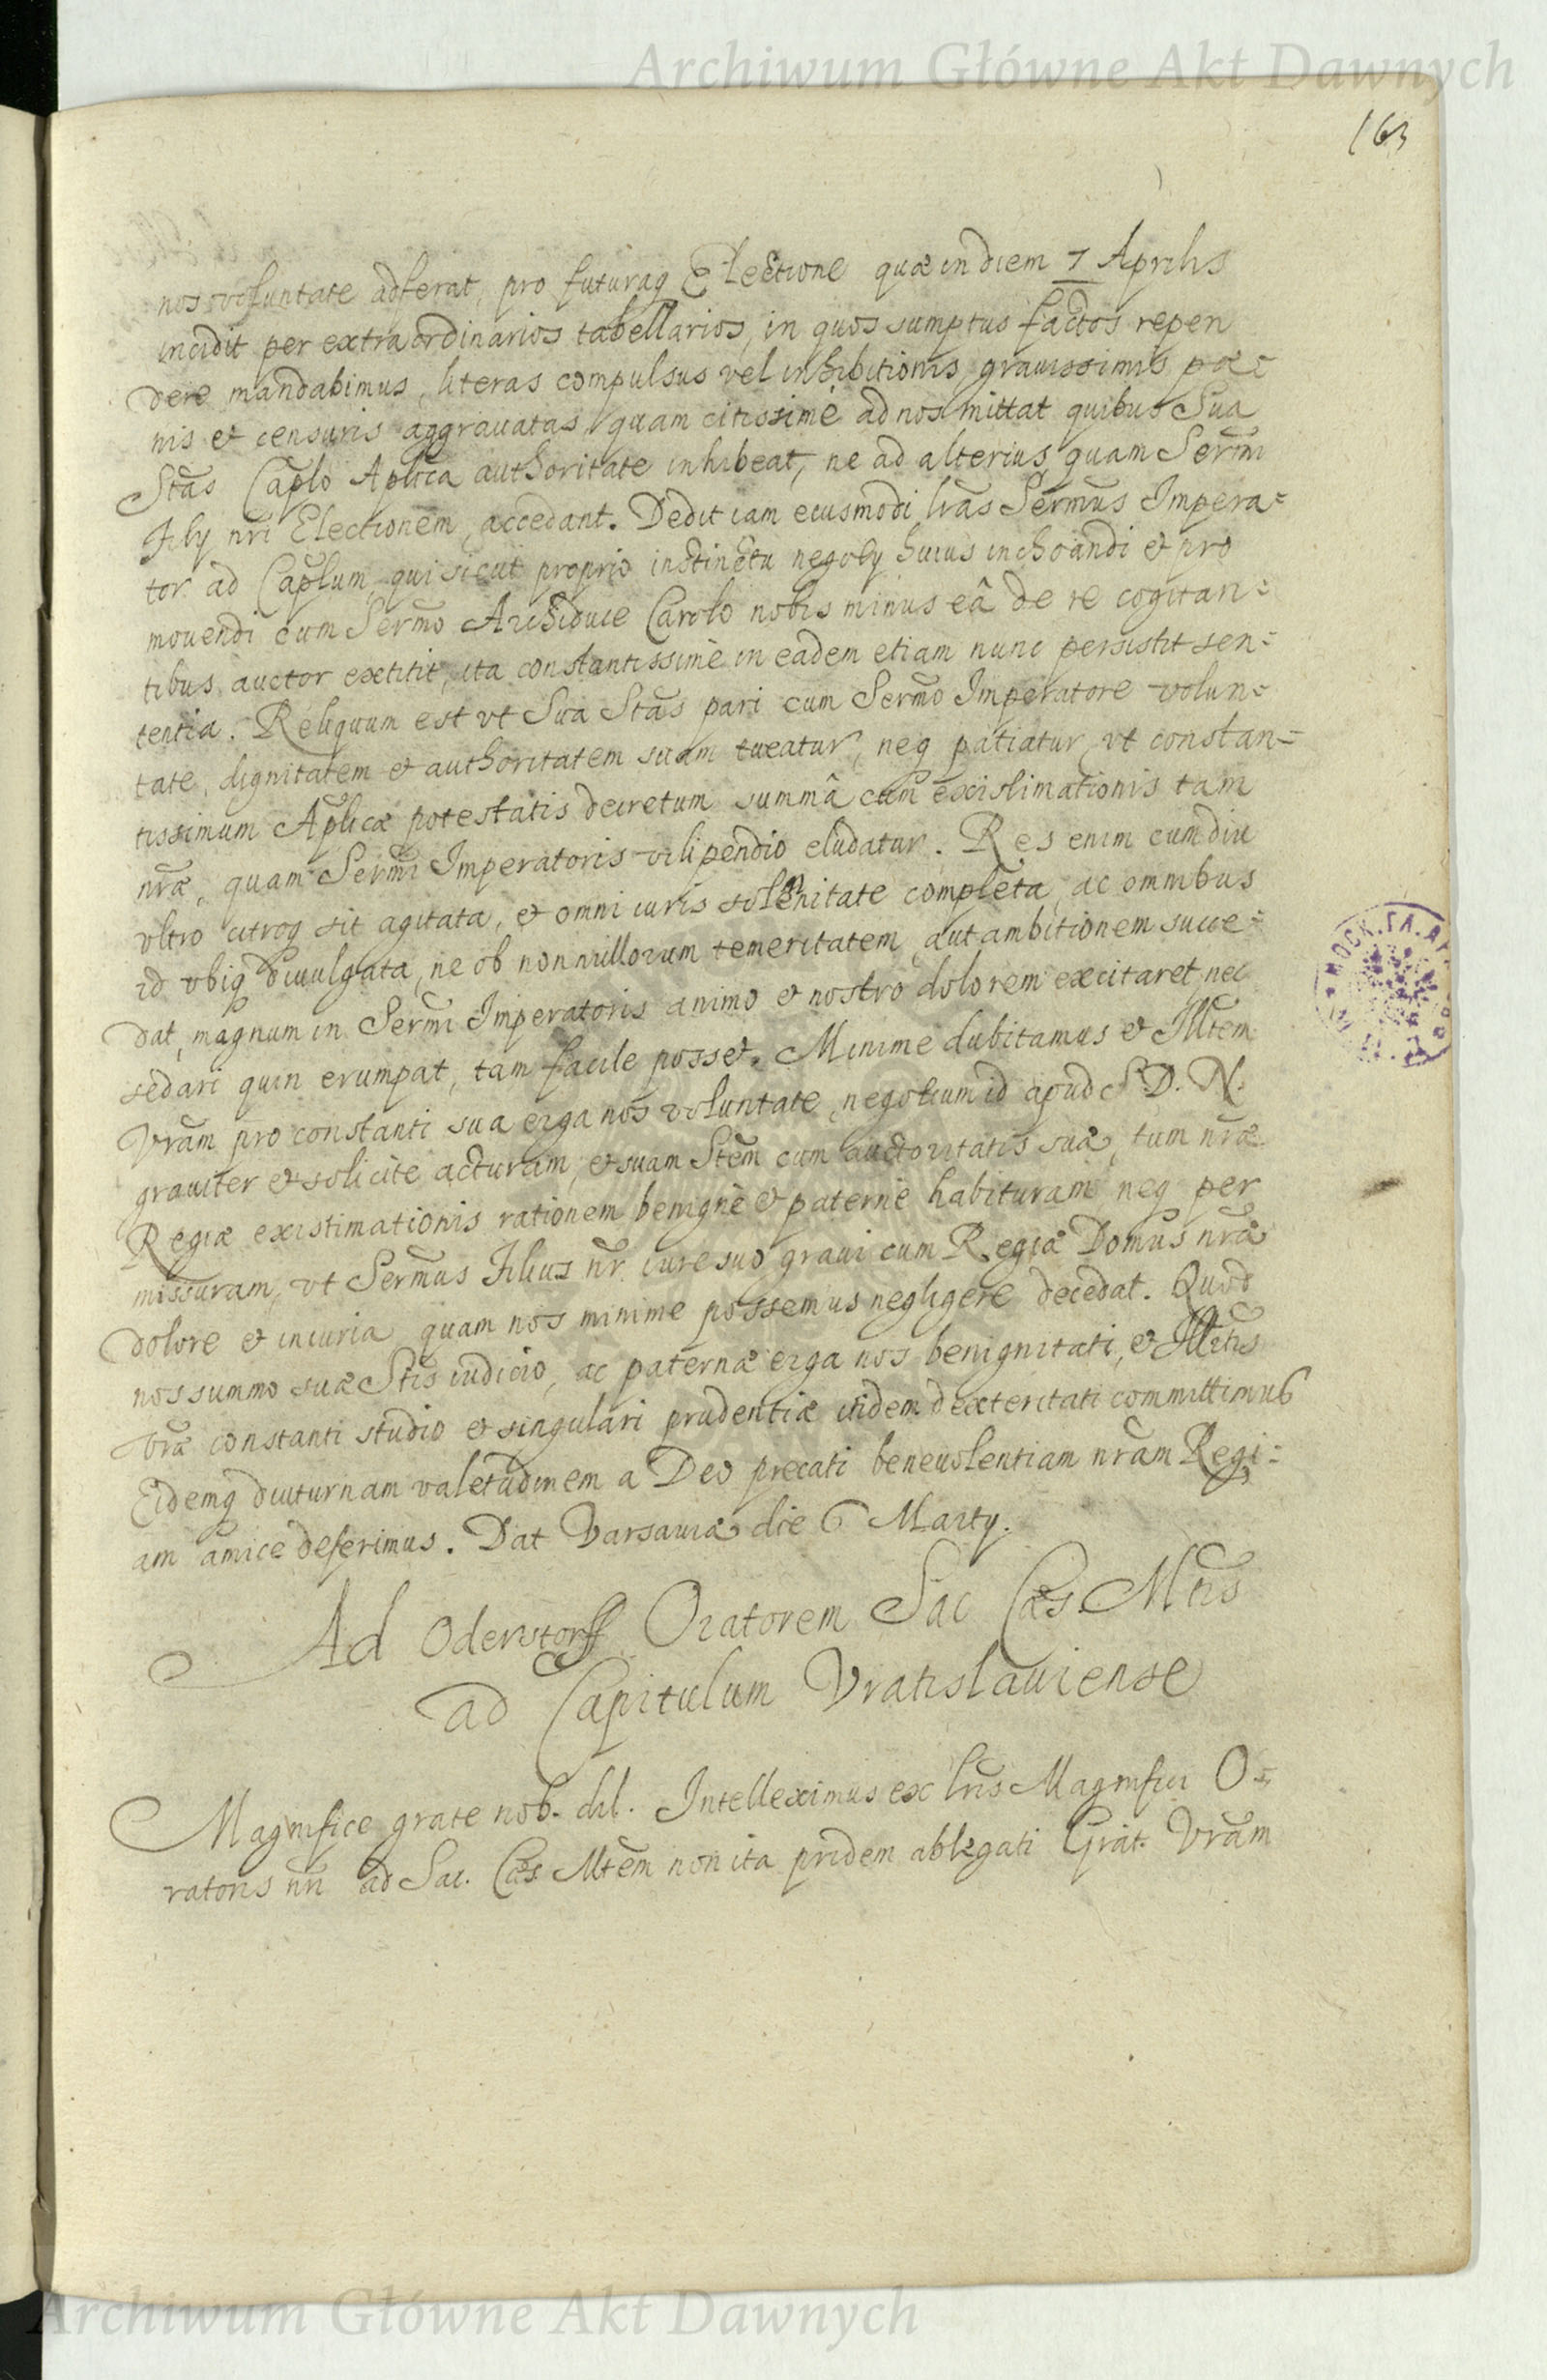 Archiwum Główne Akt Dawnych
163
nos voluntate adferat, pro futuraq Electione quæ in diem 7 Aprilis
incidit per extraordinarios tabellarios, in quos sumptus factos repen
dere mandabimus, literas compulsus vel inhibitionis grauissimis pæ=
nis et censuris aggrauatas quam citissimè ad nos mittat quibus Sua
Stas Caplo Aplica authoritate inhibeat, ne ad alterius quam Sermi
Filij nri Electionem accedant. Dedit iam eiusmodi lras Sermus Impera=
tor ad Caplum, qui sicut proprio instinctu negotij huius inchoandi et pro
mouendi cum Sermo Archiduce Carolo nobis minus eâ de re cogitan=
tibus auctor extitit, ita constantissimè in eadem etiam nunc persistit sen=
tentia. Reliquum est vt Sua Stas pari cum Sermo Imperatore volun=
tate, dignitatem et authoritatem suam tueatur, neq patiatur vt constan=
tissimum Aplicæ potestatis decretum summâ cum existimationis tam
nræ, quam Sermi Imperatoris vilipendio eludatur. Res enim cum diu
vltro citroq sit agitata, et omni iuris solennitate completa, ac omnibus
id vbiq diuulgata, ne ob nonnullorum temeritatem aut ambitionem succe=
dat, magnum in Sermi Imperatoris animo et nostro dolorem excitaret, nec
sedari quin erumpat, tam facile posset. Minime dubitamus et Illtem
Vram pro constanti sua erga nos voluntate, negotium id apud S. D. N.
grauiter et solicitè acturam, et suam Stem cum auctoritatis suæ, tum nræ
Regiæ existimationis rationem benignè et paternè habituram neq per
missuram, vt Sermus Filius nr. iure suo graui cum Regiæ Domus nræ
dolore et iniuria quam nos minime possemus negligere decedat. Quod
nos summo suæ Stis iudicio, ac paternæ erga nos benignitati, et Illtis
vræ constanti studio et singulari prudentiæ itidem dexteritati committimus
Eidemq diuturnam valetudinem a Deo precati beneuolentiam nram Regi=
am amicè deferimus. Dat Varsauiæ die 6 Martij.
Ad Oderstorff Oratorem Sac Cæs. Mtis
ad Capitulum Vratislauiense
Magnifice grate nob. dil. Intelleximus ex lris Magnifici O=
ratoris nri ad Sac. Cæs Mtem non ita pridem ablegati Grat. Vram
Archiwum Główne Akt Dawnych